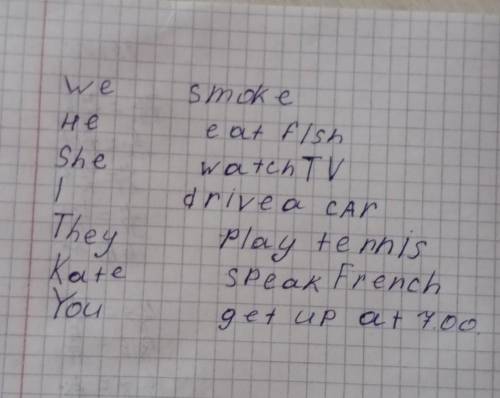 We smoke
He eat fish
She watch TV
I drive a car
They play tennis
Kate speak French
You get up at 7.00.